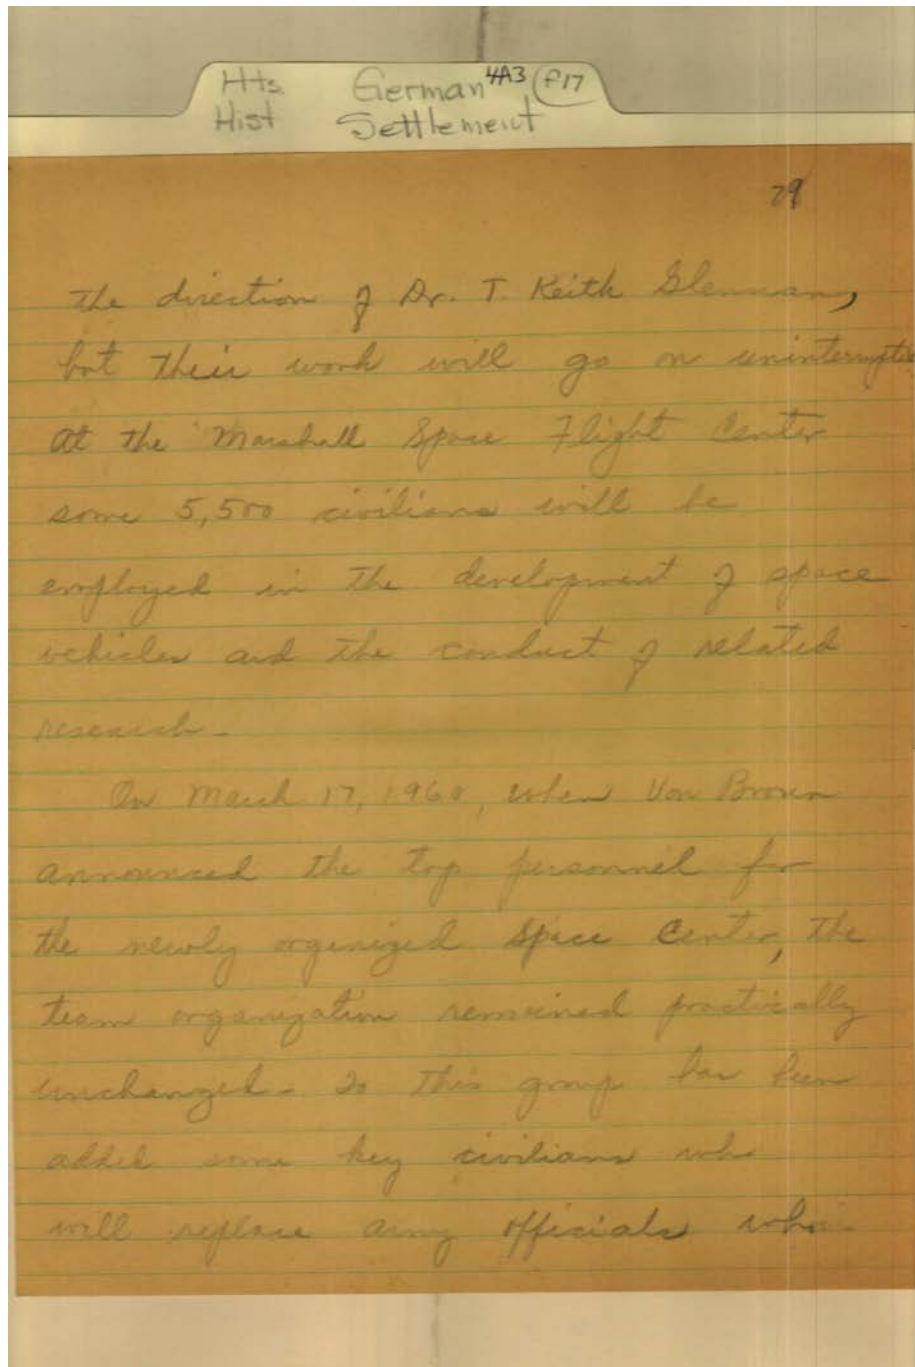 Hts. German 4A3 f17
Hist Settlement
29
the direction of Dr. T. Keith Glennan,
but their work will go on uninterrupted
At the Marshall Space Flight Center
some 5,500 civilians will be
employed in the development of space
vehicles and the conduct of related
research.
On March 17, 1960, when Von Braun
announced the top personnel for
the newly organized Space Center, the
team organization remained practically
unchanged. To this group has been
added some key civilians who
will replace army officials who